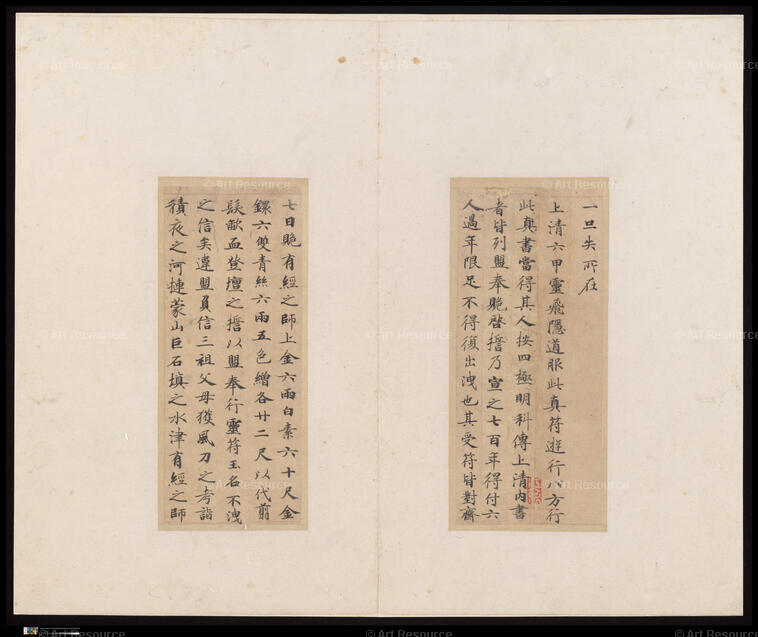 一旦失所在
上清六甲靈飛隱道服此真符遊行八方行
此真書當得其人按四極明科傳上清內書
者皆列盟奉貺啓擔乃宣之七百年得付六
人過年限足不得復出洩也其受符皆對齋
七日貺有經之師上金六兩白素六十尺金
鐶六雙青絲六兩五色繒各廿二尺以代翦
髮歃血登壇之擔以盟奉行靈符玉名不洩
之信矣違盟負信三祖父母獲風刀之考詣
積夜之河揵蒙山巨石填之水津有經之師
© Art Resource